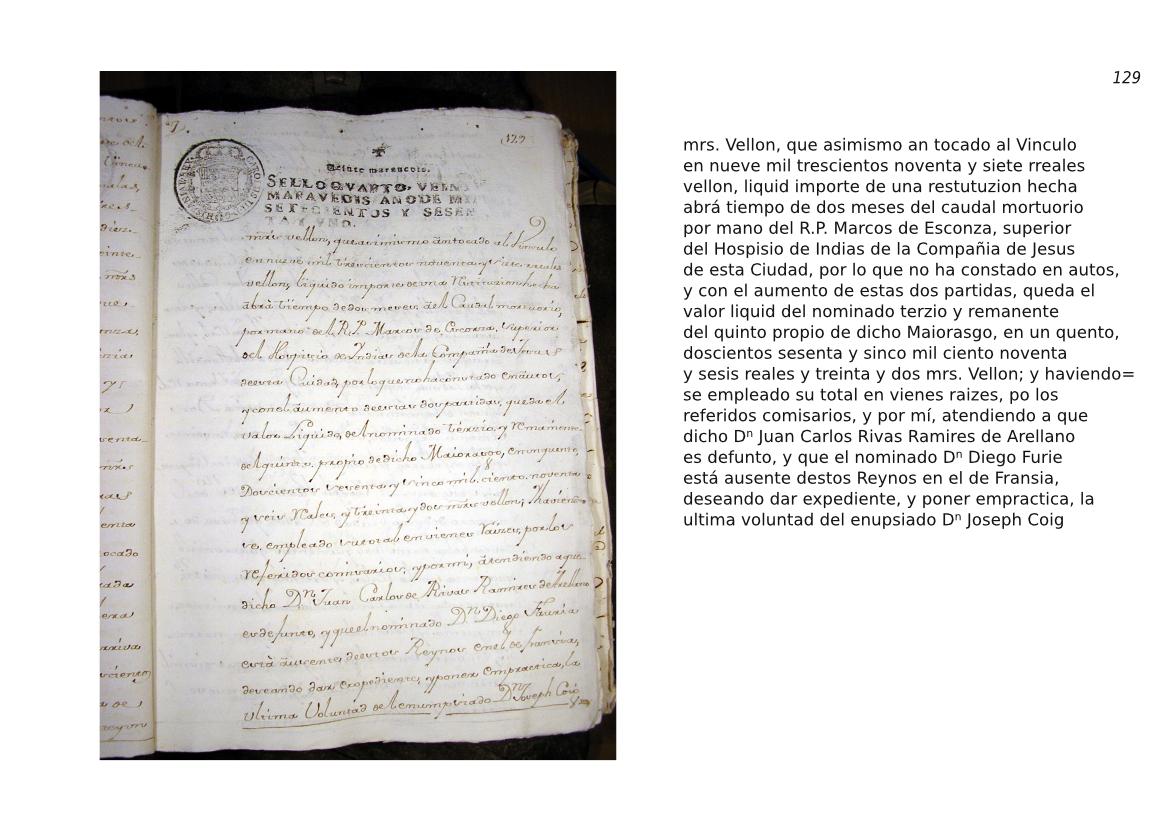 129
(129
Veinte maravedis.
SELLO QVARTO, VEIN
MARAVEDIS, AÑO DE MI
SETECIENTOS Y SESEN
TA Y VNO.
mrs vellon, que asimismo an tocado al Vinculo
en nueve mil trescientos noventa y siete reales
vellon, liquido importe de una Restituzion hecha
abrá tiempo de dos meses, del Caudal mortuorio,
por mano del R. P. Marcos de Esconza, Superior
del Hospicio de Indias de la Compañia de Jesus
de esta Ciudad, por lo que no ha constado en autos,
y con el aumento de estas dos partidas, queda el
valor Liquido, del nominado terzio, y Remanente
del quinto, propio de dicho Maiorasgo, en un quento,
Doscientos sesenta y sinco mil, ciento, noventa
y seis Reales, y treinta y dos mrs vellon; Haviendo
se, empleado su total en vienes Raizes, por los
referidos comisarios, y por mi, atendiendo a que
dicho Dⁿ Juan Carlos de Rivas Ramires de Arellano
es defunto, y que el nominado Dⁿ Diego
està ausente, de estos Reynos en el de fransia,
deseando dar expediente, y poner empractica, la
ultima Voluntad del enumpsiado Dⁿ Joseph Coig
mrs. Vellon, que asimismo an tocado al Vinculo
en nueve mil trescientos noventa y siete rreales
vellon, liquid importe de una restutuzion hecha
abrá tiempo de dos meses del caudal mortuorio
por mano del R.P. Marcos de Esconza, superior
del Hospisio de Indias de la Compañia de Jesus
de esta Ciudad, por lo que no ha constado en autos,
y con el aumento de estas dos partidas, queda el
valor liquid del nominado terzio y remanente
del quinto propio de dicho Maiorasgo, en un quento,
doscientos sesenta y sinco mil ciento noventa
y sesis reales y treinta y dos mrs. Vellon; y haviendo=
se empleado su total en vienes raizes, po los
referidos comisarios, y por mí, atendiendo a que
dicho Dⁿ Juan Carlos Rivas Ramires de Arellano
es defunto, y que el nominado Dⁿ Diego Furie
está ausente destos Reynos en el de Fransia,
deseando dar expediente, y poner empractica, la
ultima voluntad del enupsiado Dⁿ Joseph Coig